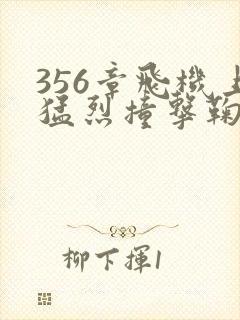 356章飛機上
猛烈撞擊鞠
柳下揮1